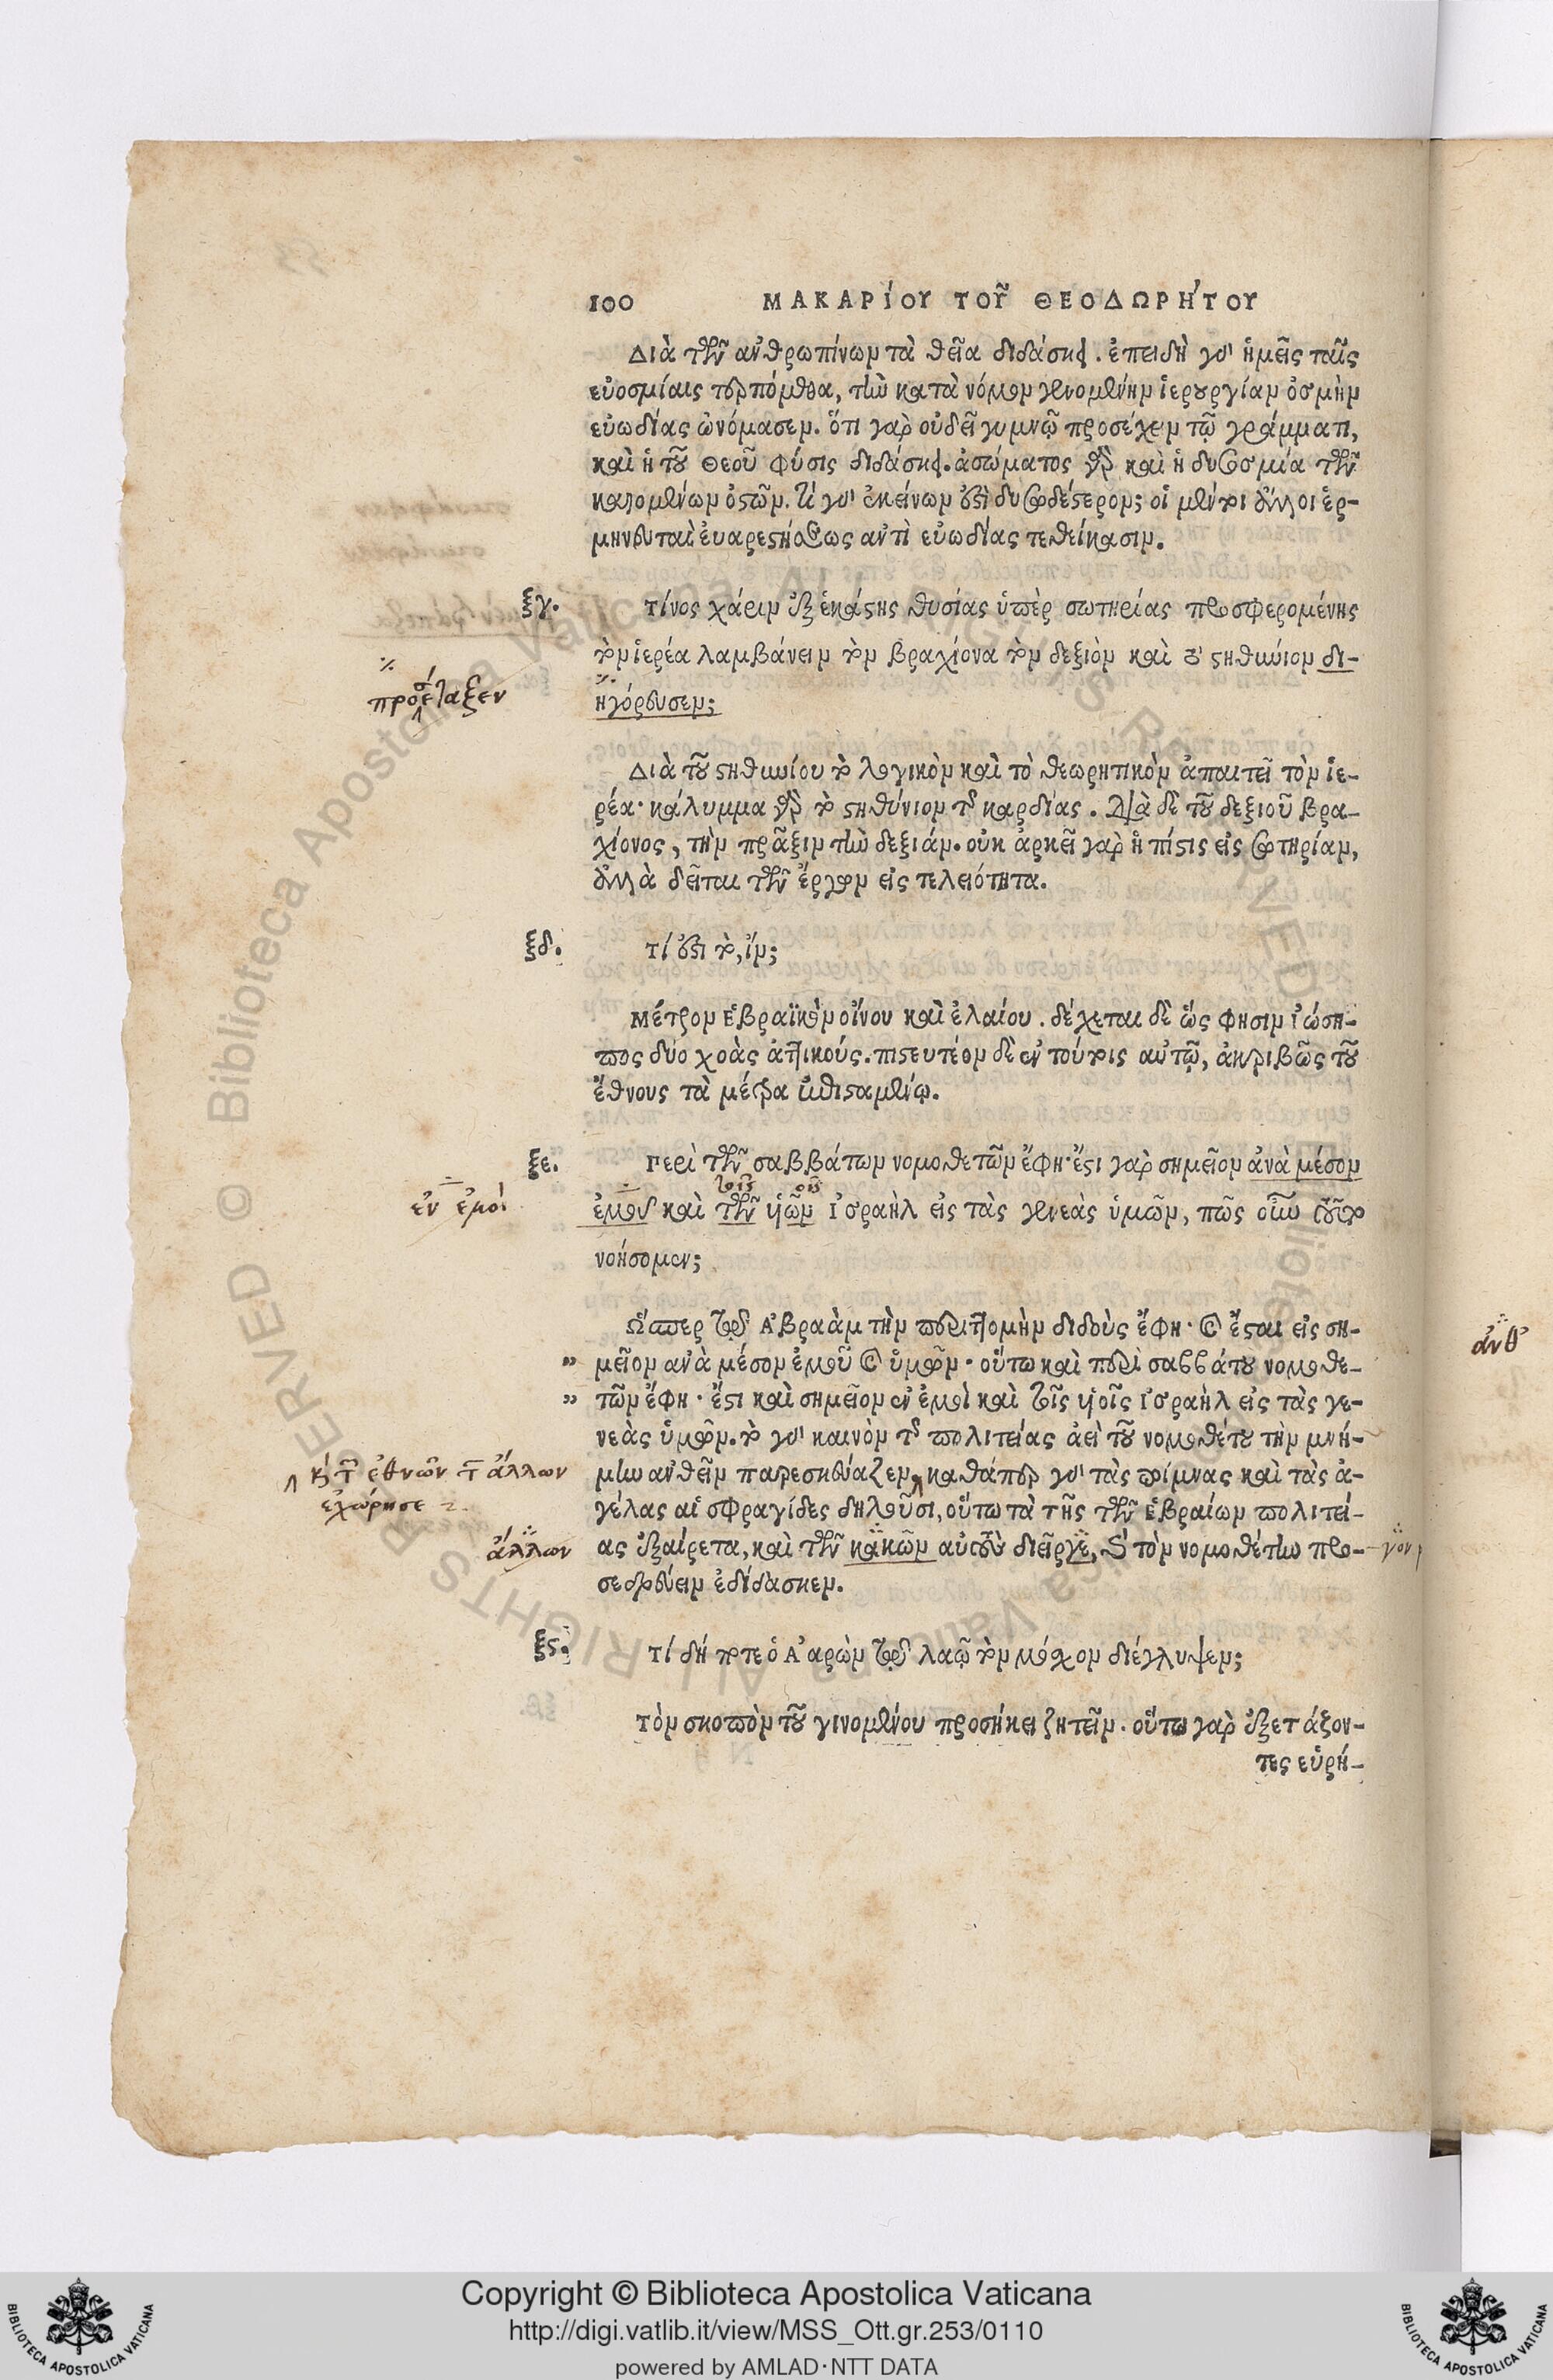 100 ΜΑΚΑΡίΟΥ ΤΟῦ ΘΕΟΔΩΡΉΤΟΥ
Διὰ τῶν ἀνθρωπίνων τὰ θεῖα διδάσκει. ἐπειδὴ γὰρ ἡμεῖς ταῖς
εὐοσμίαις τερπόμεθα, τὴν κατὰ νόμον γενομένην ἱερουργίαν ὀσμὴν
εὐωδίας ὠνόμασεν. ὅτι γὰρ οὐ δεῖ γυμνῷ προσέχειν τῷ γράμματι,
καὶ ἡ τοῦ Θεοῦ φύσις διδάσκει. ἀσώματος γὰρ καὶ ἡ δυσοσμία τῶν
καιομένων ὀστῶν. τί γὰρ ἐκείνων ἐστὶ δυσωδέστερον; οἱ μέντοι ἄλλοι ἑρ-
μηνευταὶ εὐαρεστήσεως ἀντὶ εὐωδίας τεθείκασιν.
ξγ. Τίνος χάριν ἐξ ἑκάστης θυσίας ὑπὲρ σωτηρίας προσφερομένης
τὸν ἱερέα λαμβάνειν τὸν βραχίονα τὸν δεξιὸν καὶ τὸ στηθύνιον δι-
ηγόρευσεν;
προσέταξεν
Διὰ τοῦ στηθυνίου τὸ λογικὸν καὶ τὸ θεωρητικὸν ἀπαιτεῖ τὸν ἱε-
ρέα· κάλυμμα γὰρ τὸ στηθύνιον τῆς καρδίας. διὰ δὲ τοῦ δεξιοῦ βρα-
χίονος, τὴν πρᾶξιν τὴν δεξιάν. οὐκ ἀρκεῖ γὰρ ἡ πίστις εἰς σωτηρίαν,
ἀλλὰ δεῖται τῶν ἔργων εἰς τελειότητα.
ξδ. Τί ἐστι τὸ, ἴν;
Μέτρον Ἑβραϊκὸν οἴνου καὶ ἐλαίου. δέχεται δὲ ὥς φησιν Ἰώση-
πος δύο χοὰς ἀττικούς. πιστευτέον δὲ ἐν τούτοις αὐτῷ, ἀκριβῶς τοῦ
ἔθνους τὰ μέτρα ἐπισταμένῳ.
ξε. Περὶ τῶν σαββάτων νομοθετῶν ἔφη· ἔστι γὰρ σημεῖον ἀνὰ μέσον
ἐμοῦ καὶ τῶν υἱῶν Ἰσραὴλ εἰς τὰς γενεὰς ὑμῶν, πῶς οὖν τοῦτο
τοῖς οῖς
ἐν ἐμοὶ
νοήσομεν;
Ὥσπερ τῷ Ἀβραὰμ τὴν περιτομὴν διδοὺς ἔφη· καὶ ἔσται εἰς ση-
" μεῖον ἀνὰ μέσον ἐμοῦ καὶ ὑμῶν· οὕτω καὶ περὶ σαββάτου νομοθε-
" τῶν ἔφη· ἔστι καὶ σημεῖον ἐν ἐμοὶ καὶ τοῖς υἱοῖς Ἰσραὴλ εἰς τὰς γε-
νεὰς ὑμῶν. τὸ γὰρ καινὸν τῆς πολιτείας ἀεὶ τοῦ νομοθέτου τὴν μνή-
μην ἀνθεῖν παρεσκεύαζεν, καθάπερ γὰρ τὰς ποίμνας καὶ τὰς ἀ-
γέλας αἱ σφραγίδες δηλοῦσι, οὕτω τὰ τῆς τῶν Ἑβραίων πολιτεί-
ας ἐξαίρετα, καὶ τῶν κακῶν αὐτοὺς διεῖργε, καὶ τὸν νομοθέτην προ-
σεδρεύειν ἐδίδασκεν.
καὶ τῶν ἐθνῶν τῶν ἄλλων
ἐχώρησε
ἄλλων
γον
ξς. Τί δή ποτε ὁ Ἀαρὼν τῷ λαῷ τὸν μόσχον διέγλυψεν;
Τὸν σκοπὸν τοῦ γινομένου προσήκει ζητεῖν. οὕτω γὰρ ἐξετάζον-
τες εὑρή-
ἀνθ
© Biblioteca Apostolica Vaticana ALL RIGHTS RESERVED
Copyright © Biblioteca Apostolica Vaticana
http://digi.vatlib.it/view/MSS_Ott.gr.253/0110
powered by AMLAD·NTT DATA
BIBLIOTECA APOSTOLICA VATICANA
BIBLIOTECA APOSTOLICA VATICANA